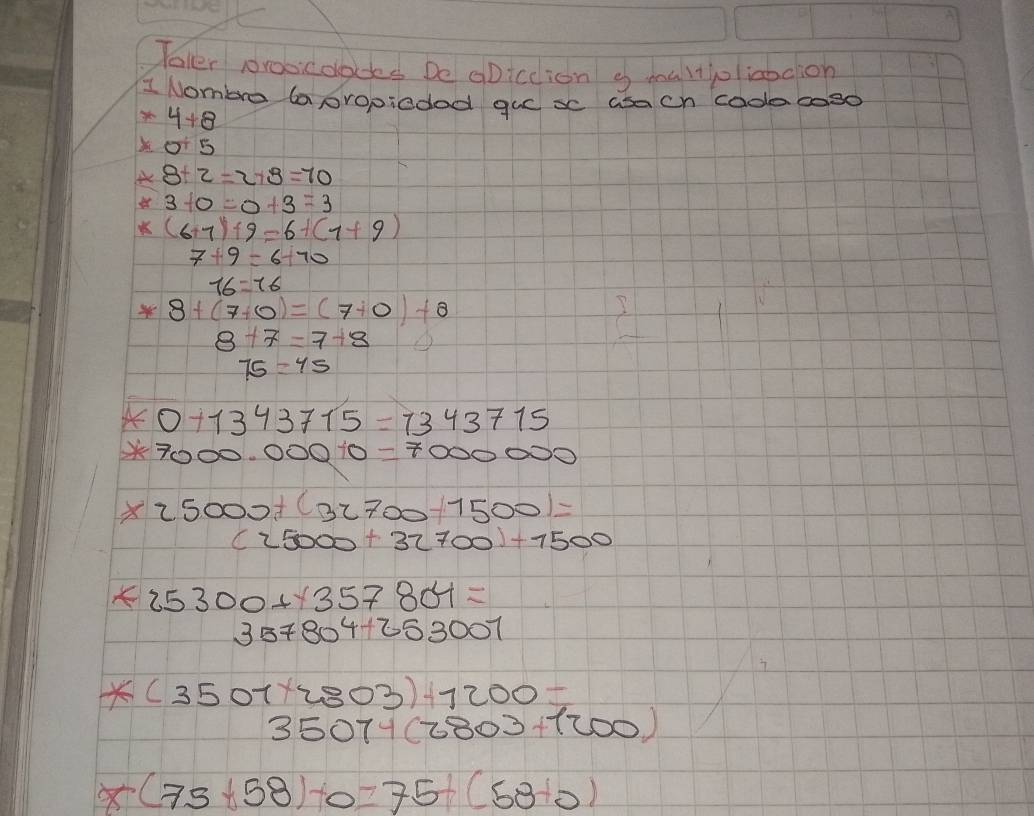 Taller propiedades De aDiccion y multipliabcion
1 Nombre la propiedad que se usa en cada caso
* 4+8
* 0+5
* 8+2=2+8=10
* 3+0=0+3=3
* (6+1)+9=6+(1+9)
7+9=6+10
16=16
* 8+(7+0)=(7+0)+8
8+7=7+8
15=15
* 0+1343715=1343715
* 7000.000+0=7000000
* 25000+(32700+1500)=
(25000+32700)+1500
* 25300+1357804=
357804+253001
* (3501+2803)+1200=
3501+(2803+1200)
* (75+58)+0=75+(58+0)